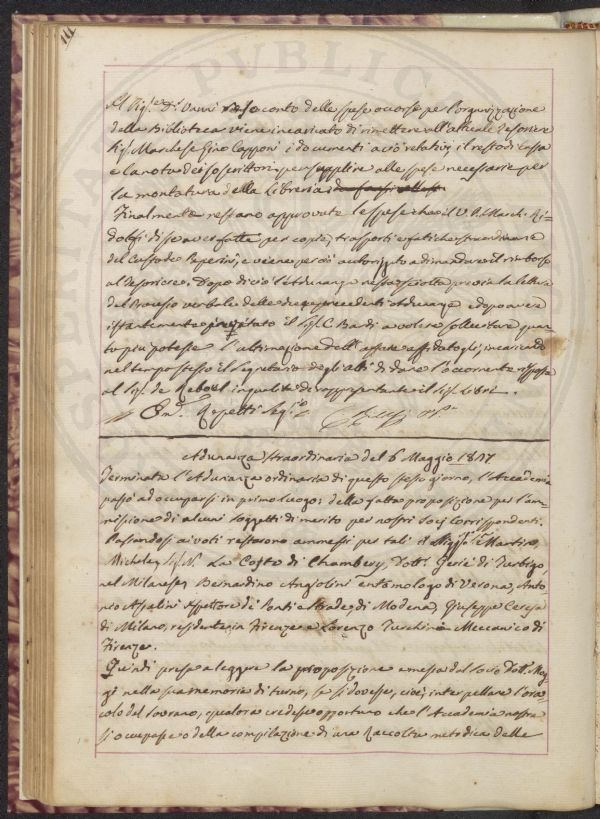 Al Sig.e D.r Vanni reso conto delle spese occorse per l'organizzazione
della Biblioteca viene incaricato di rimettere all'attuale Tesoriere
Sig. Marchese Gino Capponi i documenti a ciò relativi, il resto di cassa
e la nota dei soscrittori per supplire alle spese necessarie per
la montatura della Libreria
Finalmente restano approvate le spese che il V. P. March. Ri-
dolfi disse aver fatte per copie, trasporti e fatiche straordinarie
del Custode Peperini, e viene perciò autorizzato a dimandare il rimborso
al Tesoriere. Dopo di ciò l'Adunanza restò sciolta previa la lettura
del Processo verbale delle due precedenti adunanze e dopo avere
istantemente invitato il Sig. C. Bardi a volere sollecitare quan-
to più potesse l'ultimazione dell'affare affidatogli, incaricando
nel tempo stesso il Segretario degli atti di dare l'occorrente risposta
al Sig. de Reboul in qualità di rappresentante il Sig. Libri.
Em. Repetti Seg.rio
Adunanza straordinaria del 6 Maggio 1817
Terminata l'Adunanza ordinaria di questo stesso giorno, l'Accademia
passò ad occuparsi in primo luogo: della fatta proposizione per l'am-
missione di alcuni soggetti di merito per nostri Socj Corrispondenti.
Passandosi ai voti restarono ammessi per tali i Martino
Micheley, Sig. N. La Coste di Chambery, Dott. Gené di Turbigo
nel Milanese, Bernardino Angolini entomologo di Verona, Anto-
nio Assalini Ispettore de' Ponti e Strade di Modena, Giuseppe Ceresa
di Milano, residente in Firenze e Lorenzo Turchini Meccanico di
Firenze.
Quindi prese a leggere la proposizione emessa dal socio Dott. Mag-
gi nella sua memoria di turno, se si dovesse, cioè, interpellare l'ora-
colo del Sovrano, qualora credesse opportuno che l'Accademia nostra
si occupasse o della compilazione di una Raccolta metodica delle